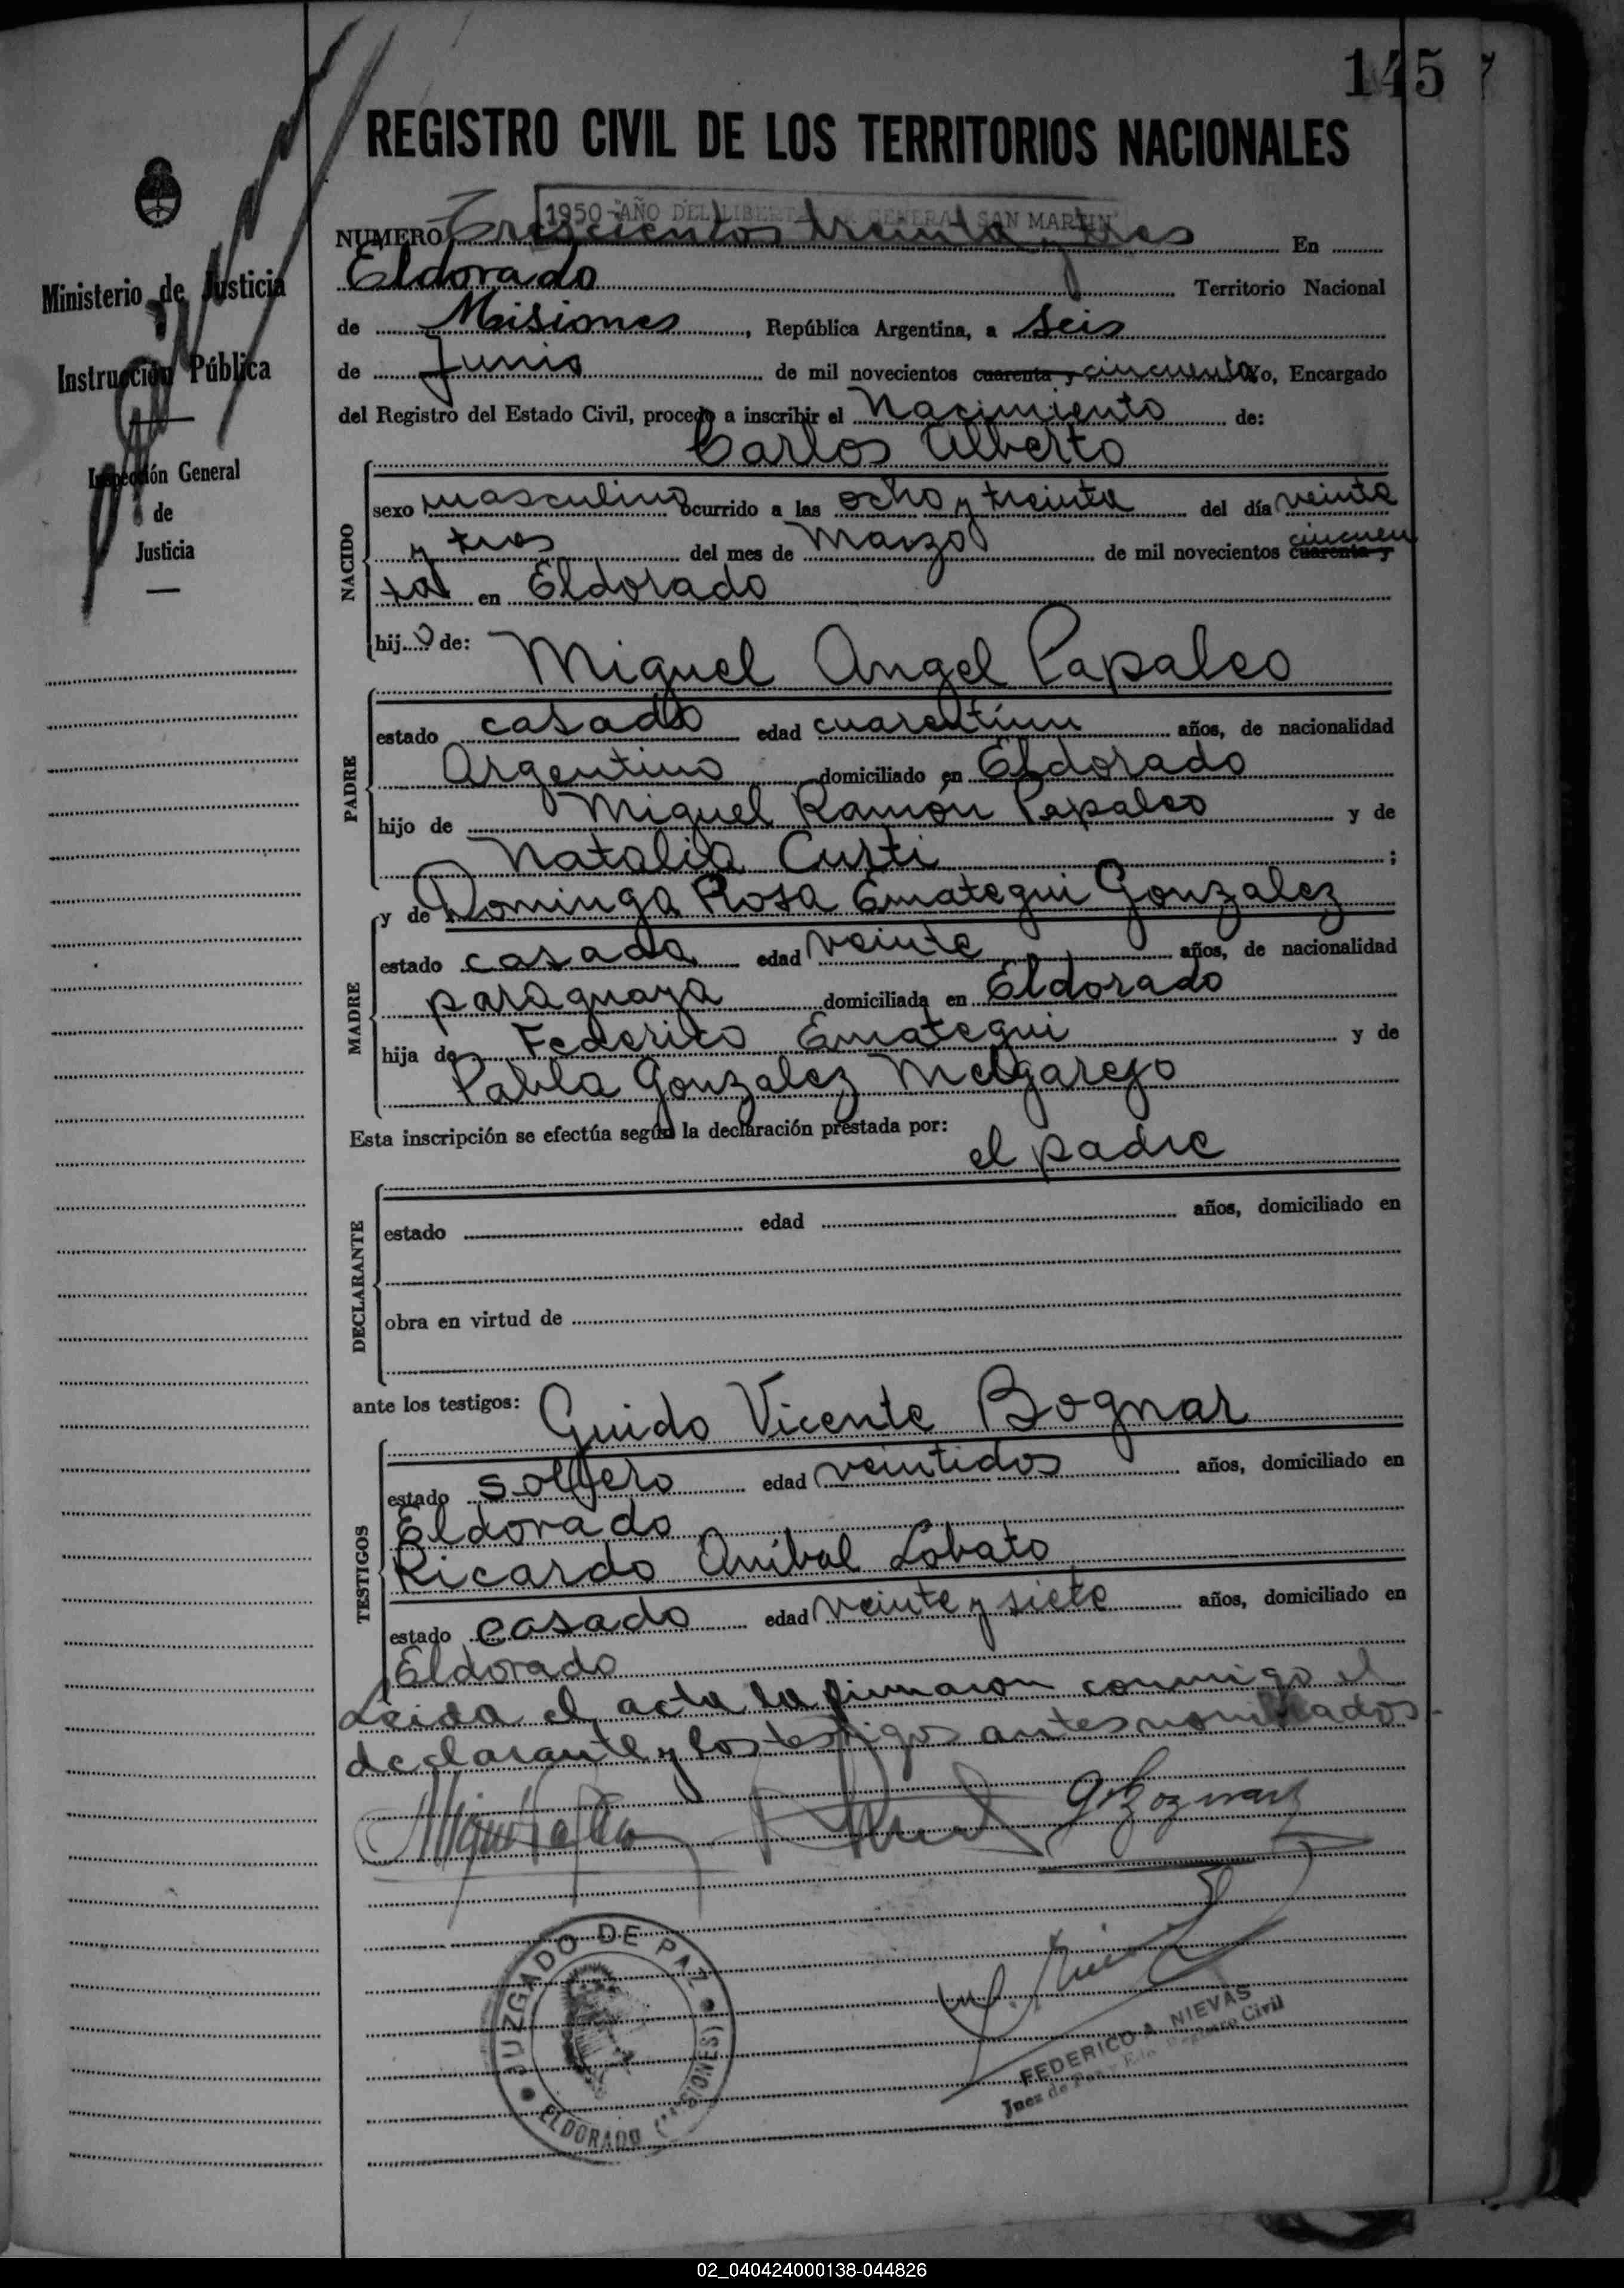 145 7
REGISTRO CIVIL DE LOS TERRITORIOS NACIONALES
1950-AÑO DEL LIBERTADOR GENERAL SAN MARTIN
NUMERO Trescientos treinta y tres En
Eldorado Territorio Nacional
de Misiones, República Argentina, a seis
de Junio de mil novecientos cuarenta y cincuenta Yo, Encargado
del Registro del Estado Civil, procedo a inscribir el Nacimiento de:
Carlos Alberto
sexo masculino ocurrido a las ocho y treinta del día veinte
y tres del mes de Marzo de mil novecientos cuarenta y cincuen
ta en Eldorado
hijo de: Miguel Angel Papaleo
NACIDO
estado casado edad cuarentiun años, de nacionalidad
Argentino domiciliado en Eldorado
hijo de Miguel Ramón Papaleo y de
Natalia Custi ;
PADRE
y de Dominga Rosa Emategui Gonzalez
estado casada edad veinte años, de nacionalidad
paraguaya domiciliada en Eldorado
hija de Federico Emategui y de
Pabla Gonzalez Melgarejo
MADRE
Esta inscripción se efectúa según la declaración prestada por:
el padre
estado edad años, domiciliado en
obra en virtud de
DECLARANTE
ante los testigos: Guido Vicente Bognar
estado soltero edad veintidos años, domiciliado en
Eldorado
Ricardo Anibal Lobato
estado casado edad veinte y siete años, domiciliado en
Eldorado
TESTIGOS
Leida el acta la firmaron conmigo el
declarante y los testigos antes nombrados.-
JUZGADO DE PAZ
ELDORADO (MISIONES)
FEDERICO A. NIEVAS
Juez de Paz Registro Civil
Ministerio de Justicia
Instrucción Pública
Inspección General
de
Justicia
02_040424000138-044826